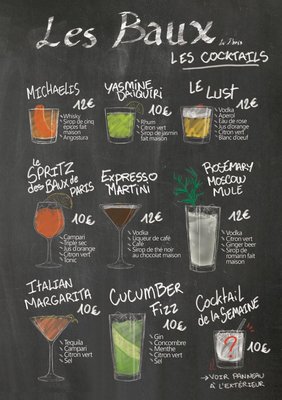 Les Baux
de Paris
LES COCKTAILS
MICHAELIS
12€
Whisky
Sirop de cinq
épices fait
maison
Angostura
YASMINE
DAIQUIRI
10€
Rhum
Citron vert
Sirop de jasmin
fait maison
LE
LUST
12€
Vodka
Aperol
Eau de rose
Jus d'orange
Citron vert
Blanc d'oeuf
LE
SPRITZ
des BAUX de
PARIS
10€
Campari
Triple sec
Jus d'orange
Citron vert
Tonic
EXPRESSO
MARTINI
12€
Vodka
Liqueur de café
Café
Sirop de thé noir
au chocolat maison
ROSEMARY
MOSCOW
MULE
12€
Vodka
Citron vert
Ginger beer
Sirop de
romarin fait
maison
ITALIAN
MARGARITA
10€
Tequila
Campari
Citron vert
Sel
CUCUMBER
FIZZ
10€
Gin
Concombre
Menthe
Citron vert
Sel
Cocktail
de la SEMAINE
?
10€
→ VOIR PANNEAU
À L'EXTÉRIEUR